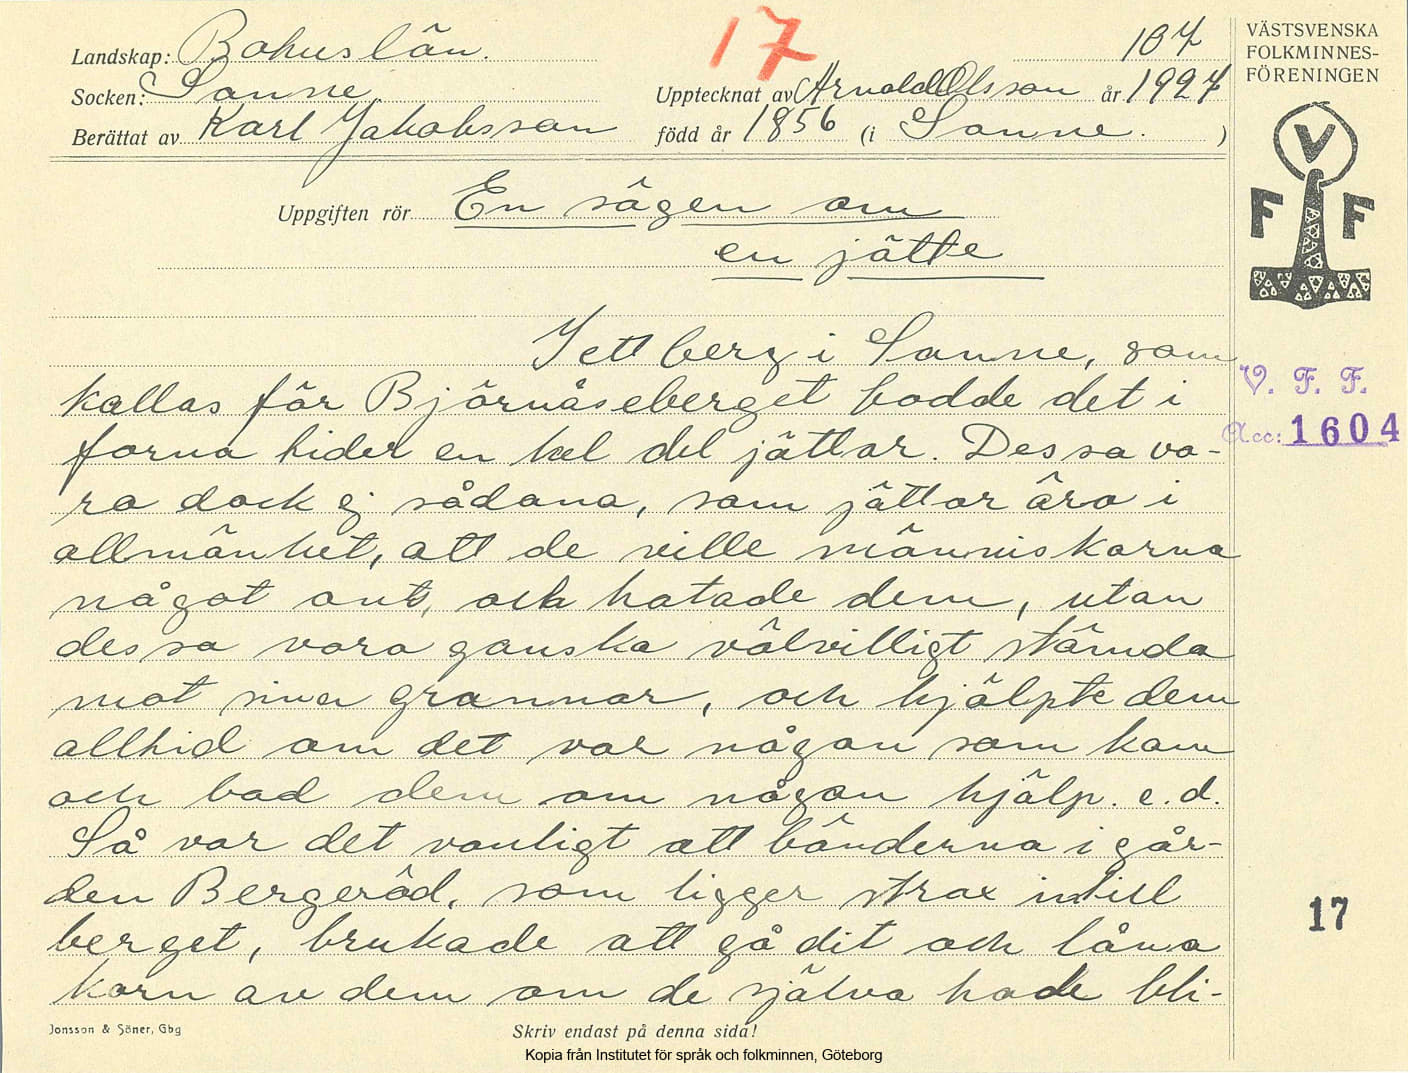 17
107
Landskap: Bohuslän.
Socken: Sanne
Upptecknat av Arnold Olsson år 1927
Berättat av Karl Jakobsson född år 1856 (i Sanne. )
Uppgiften rör En sägen om
en jätte
I ett berg i Sanne, som
kallas för Björnåseberget bodde det i
forna tider en hel del jättar. Dessa vo-
ro dock ej sådana, som jättar äro i
allmänhet, att de ville människorna
något ont, och hatade dem, utan
dessa voro ganska välvilligt stämda
mot sina grannar, och hjälpte dem
alltid om det var någon som kom
och bad dem om någon hjälp. e.d.
Så var det vanligt att bönderna i går-
den Bergeröd, som ligger strax intill
berget, brukade att gå dit och låna
korn av dem om de själva hade bli-
Jonsson & Söner, Gbg
Skriv endast på denna sida!
Kopia från Institutet för språk och folkminnen, Göteborg
VÄSTSVENSKA
FOLKMINNES-
FÖRENINGEN
V
F F
V. F. F.
Acc: 1604
17